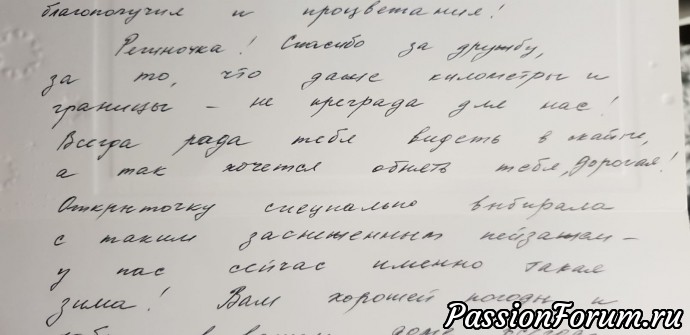 благополучия и процветания!
Региночка! Спасибо за дружбу,
за то, что даже километры и
границы – не преграда для нас!
Всегда рада тебя видеть в скайпе,
а так хочется обнять тебя, дорогая!
Открыточку специально выбирала
с таким заснеженным пейзажем –
у нас сейчас именно такая
зима! Вам хорошей погоды и
в вашем доме
PassionForum.ru